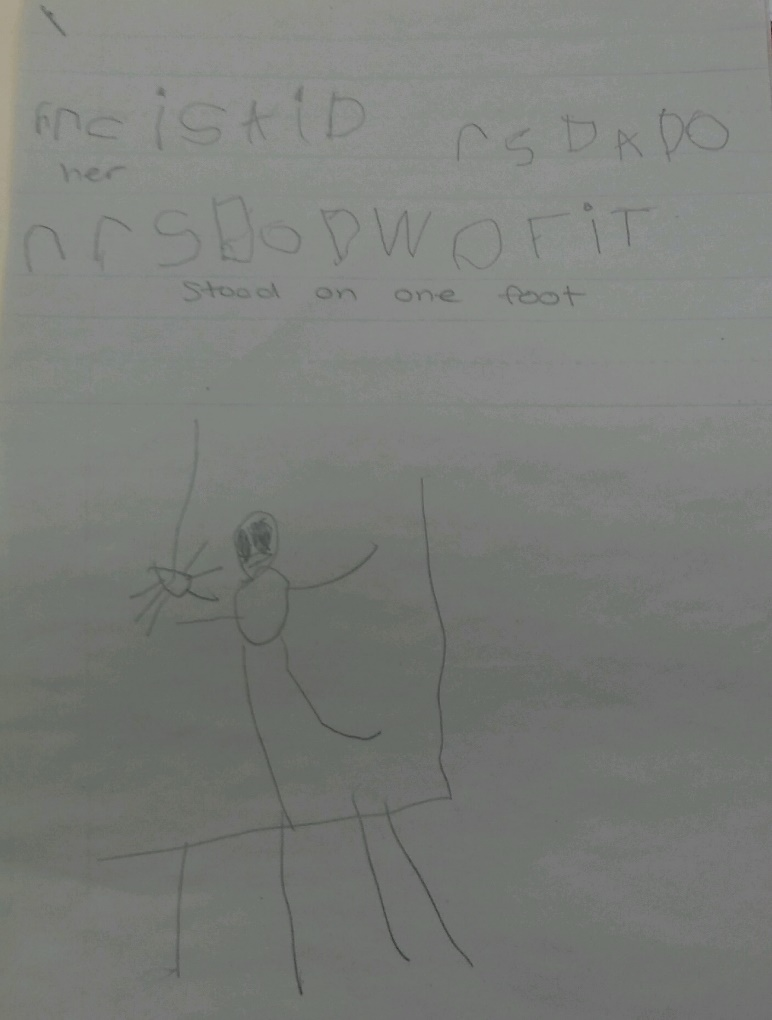 mc iStiD rSDADO
her
nrSDoDWOFiT
Stood on one foot